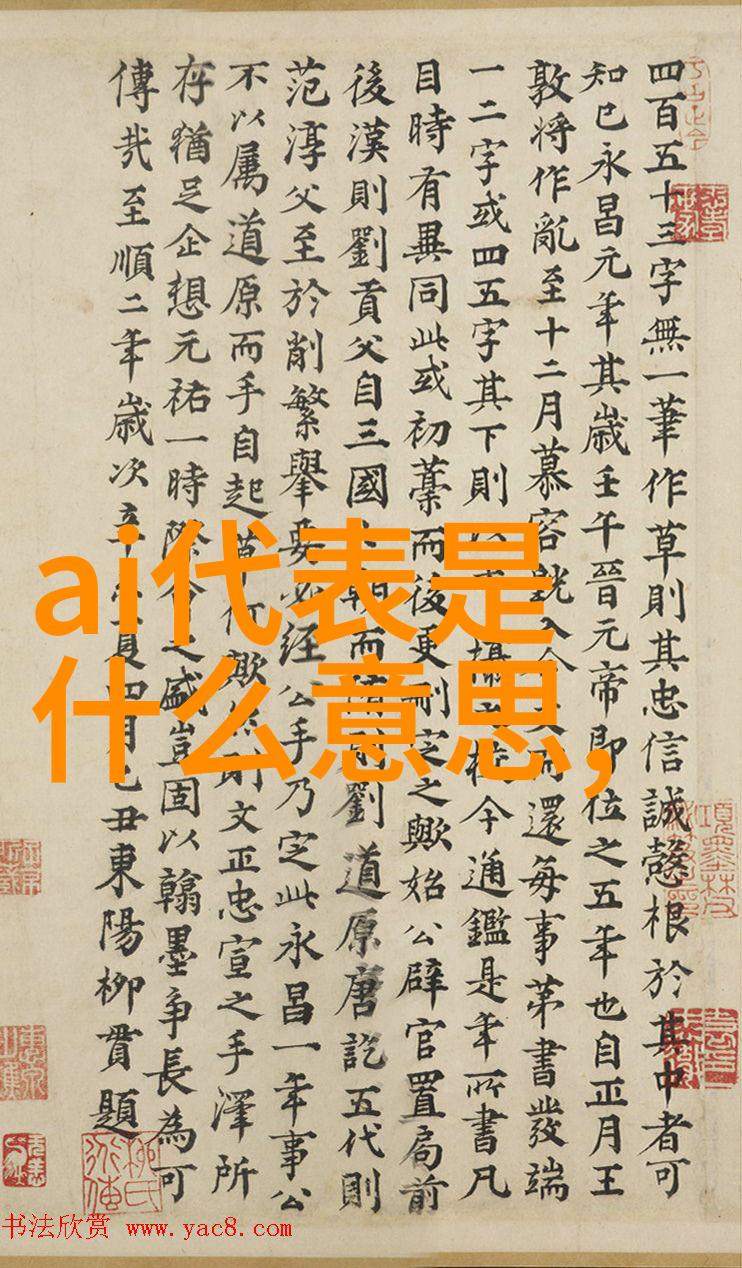 四百五十三字無一筆作草則其忠信誠慤根於其中者可
知已永昌元年其歲壬午晉元帝即位之五年也自正月王
敦將作亂至十二月慕容皝入令而還每事第書發端
一二字或四五字其下則以攝今通鑑是年所書凡
目時有異同此或初藁而後更刪定之歟始公辟官置局前
後漢則劉貢父自三國朝而隋則劉道原唐訖五代則
范淳父至於削繁舉要必經公手乃定此永昌一年事公
不以屬道原而手自起草何歟然則文正忠宣之手澤所
存猶足企想元祐一時際之盛豈固以翰墨爭長為可
傳哉至順二年歲次辛夏四月乙丑東陽柳貫題
ai代表是
什么意思,
书法欣赏 www.yac8.com